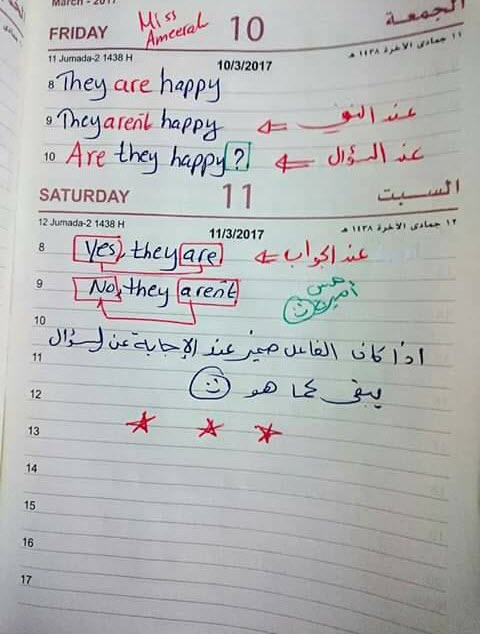 March - 2017
Miss
Ameerah
FRIDAY 10 الجمعة
11 Jumada-2 1438 H 10/3/2017 ١١ جمادى الآخرة ١٤٣٨ هـ
8 They are happy
9 They aren't happy ⇐ عند النفي
10 Are they happy? ⇐ عند السؤال
SATURDAY 11 السبت
12 Jumada-2 1438 H 11/3/2017 ١٢ جمادى الآخرة ١٤٣٨ هـ
8 Yes, they are ⇐ عند الجواب
9 No, they aren't
مس
أميرة
10
اذا كان الفاعل ضمير عند الإجابة عن السؤال
11
يبقى كما هو
12
13
14
15
16
17